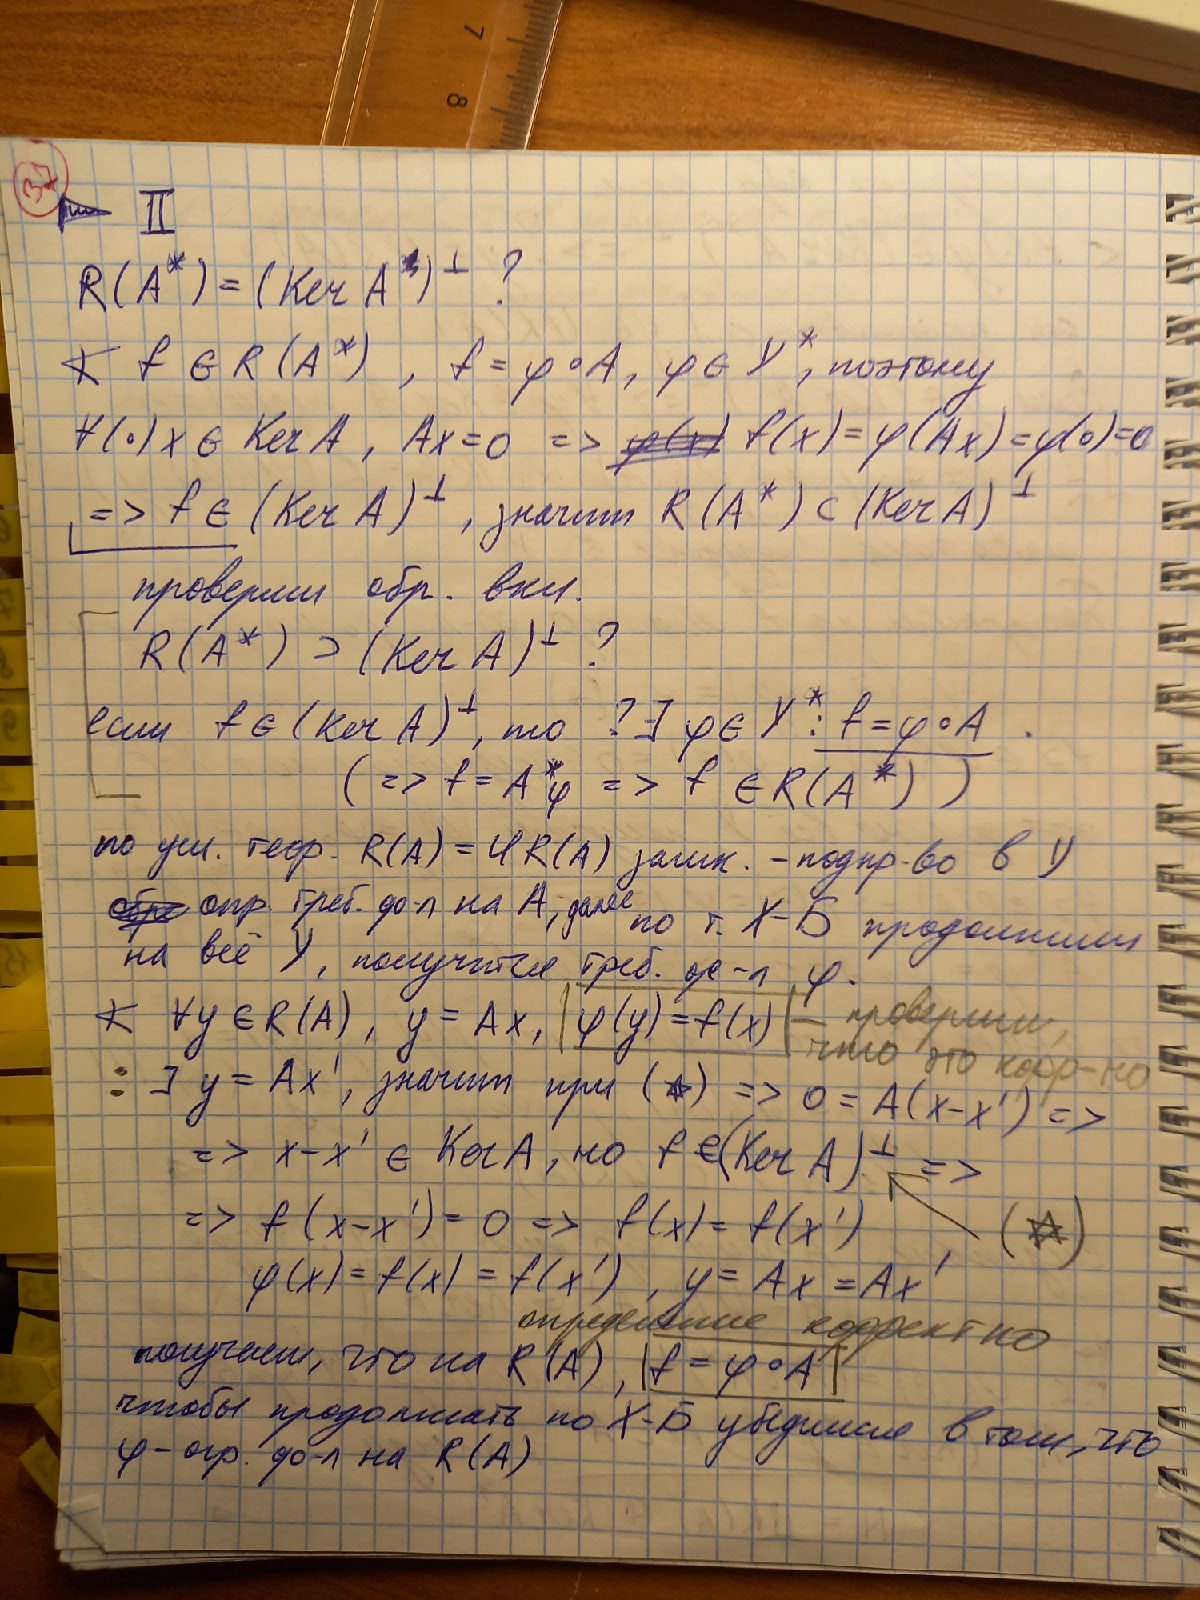 7
8
37
II
R(A*) = (Ker A*)⊥ ?
f ∈ R(A*), f = φ∘A, φ ∈ Y*, поэтому
∀(∘) x ∈ Ker A, Ax = 0 => f(x) = φ(Ax) = φ(0) = 0
=> f ∈ (Ker A)⊥, значит R(A*) ⊂ (Ker A)⊥
проверим обр. вкл.
R(A*) ⊃ (Ker A)⊥ ?
если f ∈ (Ker A)⊥, то ? ∃ φ ∈ Y*: f = φ∘A.
( => f = A*φ => f ∈ R(A*) )
по усл. теор. R(A) = Cl R(A) замк. - подпр-во в Y
опр. треб. ф-л на A, далее по т. Х-Б продолжим
на всё Y, получится треб. ф-л φ.
∀y ∈ R(A), y = Ax, |φ(y) = f(x)| – проверим,
что это корр-но
: ∃ y = Ax', значит при (☆) => 0 = A(x-x') =>
=> x-x' ∈ Ker A, но f ∈ (Ker A)⊥ =>
=> f(x-x') = 0 => f(x) = f(x') (☆)
φ(x) = f(x) = f(x'), y = Ax = Ax'
определение корректно
получаем, что на R(A), |f = φ∘A|
чтобы продолжать по Х-Б убедимся в том, что
φ - огр. ф-л на R(A)